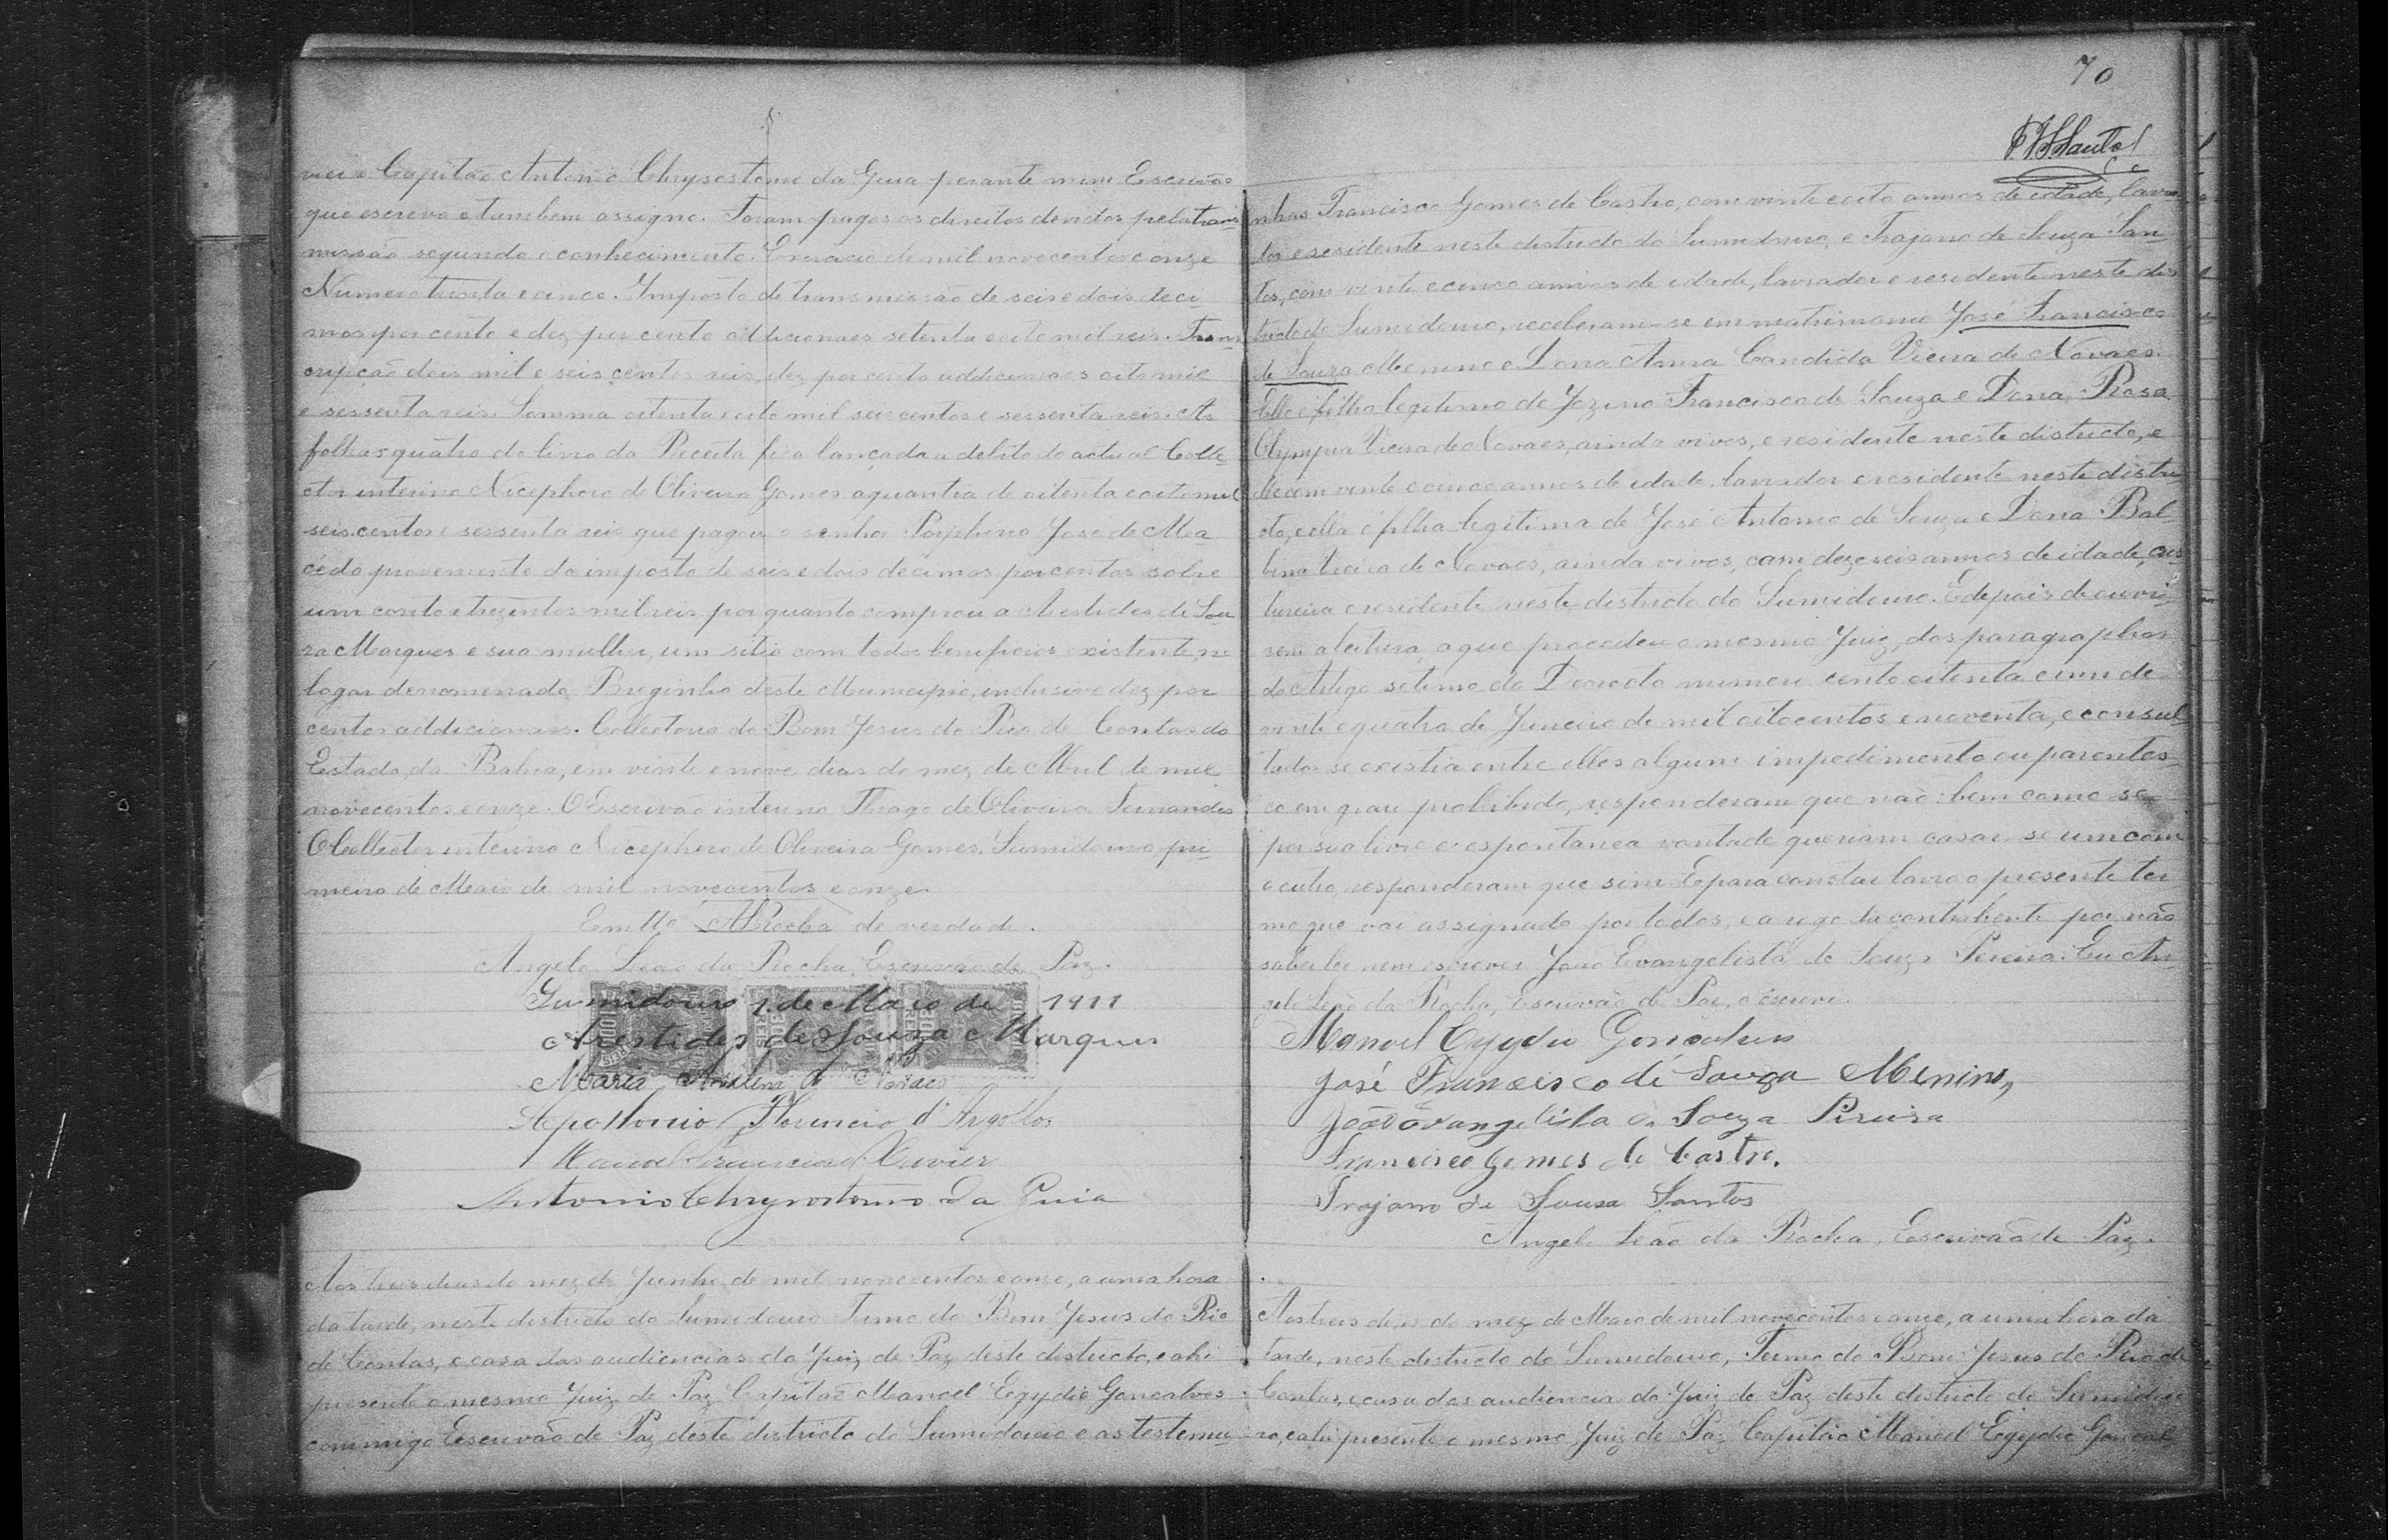 vier e Capitão Antonio Chrysostomo da Guia perante mim Escrivão
que escrevo e tambem assigno. Foram pagos os direitos devidos pela trans-
missão segundo o conhecimento. Exercicio de mil novecentos e onze
Numero trinta e cinco. Imposto de transmissão de seis e dois deci-
mos por cento e dez por cento addicionaes setenta e oito mil reis. Trans-
cripção dois mil e seis centos reis, dez por cento addicionaes oito mil
e sessenta reis. Somma oitenta e oito mil seis centos e sessenta reis. As
folhas quatro do livro da Receita fica lançada a debito do actual Colle-
ctor interino Nicephoro de Oliveira Gomes a quantia de oitenta e oito mil
seis centos e sessenta reis que pagou o senhor Porphirio José de Ma-
cêdo proveniente do imposto de seis e dois decimos por centos sobre
um conto e trezentos mil reis, por quanto comprou a Arestides de Sou-
za Marques e sua mulher, um sitio com todos beneficios existente, no
logar denomenado Breginho deste Municipio, inclusive dez por
centos addicionaes. Collectoria do Bom Jesus do Rio de Contas do
Estado da Bahia, em vinte e nove dias do mez de Abril de mil
novecentos e onze. O Escrivão interino Thiago de Oliveira Fernandes
O Collector interino Nicephoro de Oliveira Gomes. Sumidouro pri-
meiro de Maio de mil novecentos e onze.
Em tto ARocha de verdade.
Angelo Leão da Rocha, Escrivão de Paz.
Sumidouro 1. de Maio de 1911
Arestides de Souza Marques
Maria de Novaes
Apollonio Florencio d'Argollos
Manoel Francisco Xavier
Antonio Chrysostomo da Guia
Aos tres dias do mez de Junho de mil novecentos e onze, a uma hora
da tarde, neste districto do Sumidouro Termo do Bom Jesus do Rio
de Contas, e casa das audiencias do Juiz de Paz deste districto, e ahi
presente o mesmo Juiz de Paz Capitão Manoel Egydio Goncalves
commigo Escrivão de Paz deste districto do Sumidouro e as testemu-
70
nhas Francisco Gomes de Castro, com vinte e oito annos de idade, lavra-
dor e residente neste districto do Sumidouro, e Trajano de Souza San-
tos, com vinte e cinco annos de idade, lavrador e residente neste dis-
tricto do Sumidouro, receberam-se em matrimonio José Francisco
de Souza Menino e Dona Anna Candida Vieira de Novaes.
Elle é filho legitimo de Jozino Francisco de Souza e Dona Rosa
Olympia Vieira de Novaes, ainda vivos, e residente neste districto, e
elle com vinte e cinco annos de idade, lavrador e residente neste distri-
cto, e ella é filha legitima de José Antonio de Souza e Dona Bal-
bina Vieira de Novaes, ainda vivos, com dezeseis annos de idade, cos-
tureira e residente neste districto do Sumidouro. E depois de ouvi-
rem a leitura, a que procedeu o mesmo Juiz, dos paragraphos
do Artigo setimo do Decreto numero cento e oitenta e um de
vinte e quatro de Janeiro de mil oitocentos e noventa, e consul-
tados se existia entre elles algum impedimento ou parentes-
co em grau prohibido, responderam que não: bem como se
por sua livre e espontanea vontade queriam casar-se um com
o outro, responderam que sim. E para constar lavro o presente ter-
mo que vai assignado por todos, e a rogo da contrahente por não
saber ler nem escrever João Evangelista de Souza Pereira. Eu An-
gelo Leão da Rocha, Escrivão de Paz, o escrevi.
Manoel Egydio Gonçalves
José Francisco de Souza Menino,
João Evangelista de Souza Pereira
Francisco Gomes de Castro.
Trajano de Sousa Santos
Angelo Leão da Rocha, Escrivão de Paz.
Aos tres dias do mez de Maio de mil novecentos e onze, a uma hora da
tarde, neste districto do Sumidouro, Termo do Bom Jesus do Rio de
Contas, e casa das audiencia do Juiz de Paz deste districto do Sumidou-
ro, e ahi presente o mesmo Juiz de Paz Capitão Manoel Egydio Goncal-